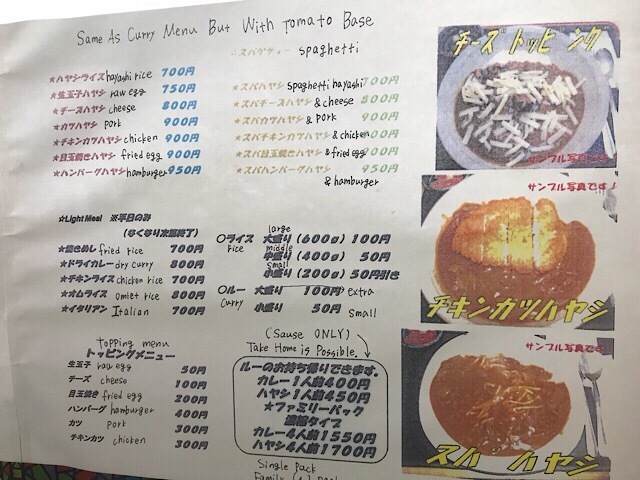 Same As Curry Menu But With Tomato Base
スパゲティー spaghetti
★ハヤシライス hayashi rice 700円
★生玉子ハヤシ raw egg 750円
★チーズハヤシ cheese 800円
★カツハヤシ pork 900円
★チキンカツハヤシ chicken 900円
★目玉焼きハヤシ fried egg 900円
★ハンバーグハヤシ hamburger 950円
★スパハヤシ spaghetti hayashi 700円
★スパチーズハヤシ & cheese 800円
★スパカツハヤシ & pork 900円
★スパチキンカツハヤシ & chicken 900円
★スパ目玉焼きハヤシ & fried egg 900円
★スパハンバーグハヤシ 950円
& hamburger
☆Light Meal ※平日のみ
(なくなり次第終了)
★焼きめし fried rice 700円
★ドライカレー dry curry 800円
★チキンライス chicken rice 700円
★オムライス omlet rice 800円
★イタリアン Italian 700円
large
○ライス 大盛り (600g) 100円
rice middle
中盛り (400g) 50円
small
小盛り (200g) 50円引き
○ルー 大盛り 100円 extra
curry 小盛り 50円 small
topping menu
トッピングメニュー
生玉子 raw egg 50円
チーズ cheese 100円
目玉焼き fried egg 200円
ハンバーグ hamburger 400円
カツ pork 300円
チキンカツ chicken 300円
(Sause ONLY)
Take Home is Possible.
ルーのお持ち帰りできます。
カレー1人前400円
ハヤシ1人前450円
★ファミリーパック
濃縮タイプ
カレー4人前1550円
ハヤシ4人前1700円
Single pack
チーズトッピング
サンプル写真です!
サンプル写真です!
チキンカツハヤシ
サンプル写真です!
スパ ハヤシ